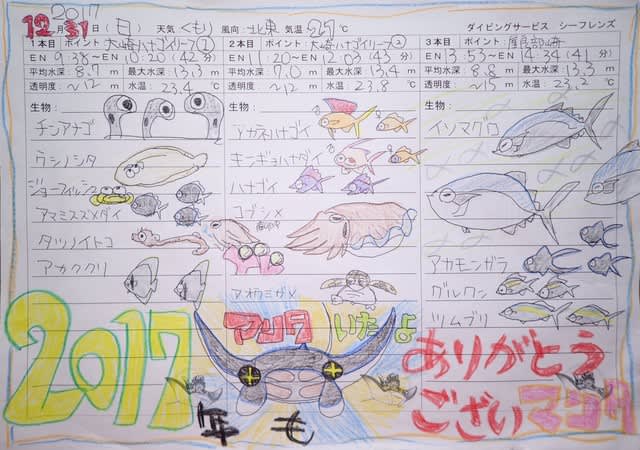 2017
12月31日(日) 天気 くもり 風向: 北東 気温: 21℃ ダイビングサービス シーフレンズ
1本目 ポイント 大崎ハナゴイリーフ①
EN 9:38~EN 10:20(42分)
平均水深: 8.7 m 最大水深: 13.3 m
透明度: ~12 m 水温: 23.4℃
生物:
チンアナゴ
ウシノシタ
ジョーフィッシュ
アマミスズメダイ
タツノイトコ
アカククリ
2本目 ポイント 大崎ハナゴイリーフ②
EN 11:20~EN 12:03(43分)
平均水深: 7.0 m 最大水深: 13.4 m
透明度: ~12 m 水温: 23.8℃
生物:
アカネハナゴイ
キンギョハナダイ
ハナゴイ
コブシメ
産卵中
アオウミガメ
3本目 ポイント 屋良部崎
EN 13:53~EN 14:34(41分)
平均水深: 8.8 m 最大水深: 13.3 m
透明度: ~15 m 水温: 23.2℃
生物:
イソマグロ
アカモンガラ
グルクン
ツムブリ
2017
年も
マンタ いたよ
ありがとう
ござい マンタ